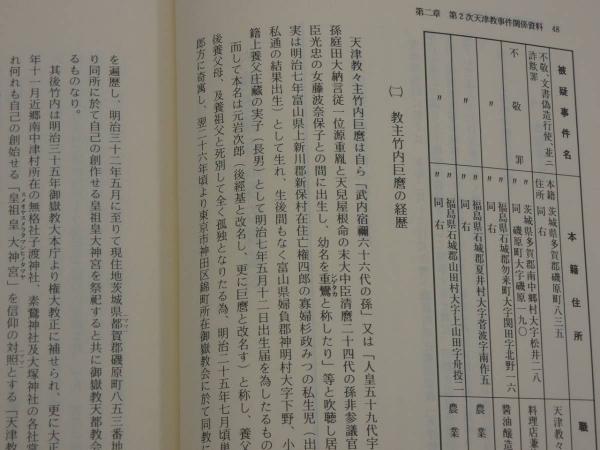 第二章　第２次天津教事件関係資料　48
被疑事件名
本籍住所
職
不敬、文書偽造行使、並ニ
詐欺罪
本籍　茨城県多賀郡磯原町八三五
住所　同　右
天津教々
不敬罪
茨城県多賀郡南中郷村大字松井二二八
同　磯原町大字磯原一九〇
料理店兼
〃
福島県石城郡勿来町大字関田字北野一六
同　右
醬油醸造
〃
福島県石城郡夏井村大字菅波字南作五
同　右
農業
〃
福島県石城郡山田村大字上山田字舟投二
同　右
農業
㈡　教主竹内巨麿の経歴
天津教々主竹内巨麿は自ら「武内宿禰六十六代の孫」又は「人皇五十九代宇
孫庭田大納言従一位源重胤と天兒屋根命の末大中臣清麿二十四代の孫非参議官
臣光忠の女藤波奈保子との間に出生し、幼名を重鸞と称したり」等と吹聴し居
実は明治七年富山県上新川郡新保村在住亡権四郎の寡婦杉政みつの私生児（出
私通の結果出生）として生れ、生後間もなく富山県婦負郡神明村大字下野、小
籍上養父庄蔵の実子（長男）として明治七年五月十二日出生届を為したるもの
而して本名は元岩次郎（後經基と改名し、更に巨麿と改名す）と称し、養父
後養父母、及養祖父と死別して全く孤独となりたる為、明治二十五年七月単
郎方に寄寓し、翌二十六年頃より東京市神田区錦町所在御嶽教会に於て同教に
を遍歴し、明治三十二年五月に至りて現住地茨城県都賀郡磯原町八五三番地
り同所に於て自己の創作せる皇祖皇大神宮を祭祀すると共に御嶽教天都教会
るものなり。
其後竹内は明治三十五年御嶽教大本庁より権大教正に補せられ、更に大正
年十一月近郷南中津村所在の無格社子渡神社、素鵞神社及大塚神社の各社掌
れ何れも自己の創始せる「皇祖皇大神宮」を信仰の対照とする「天津教